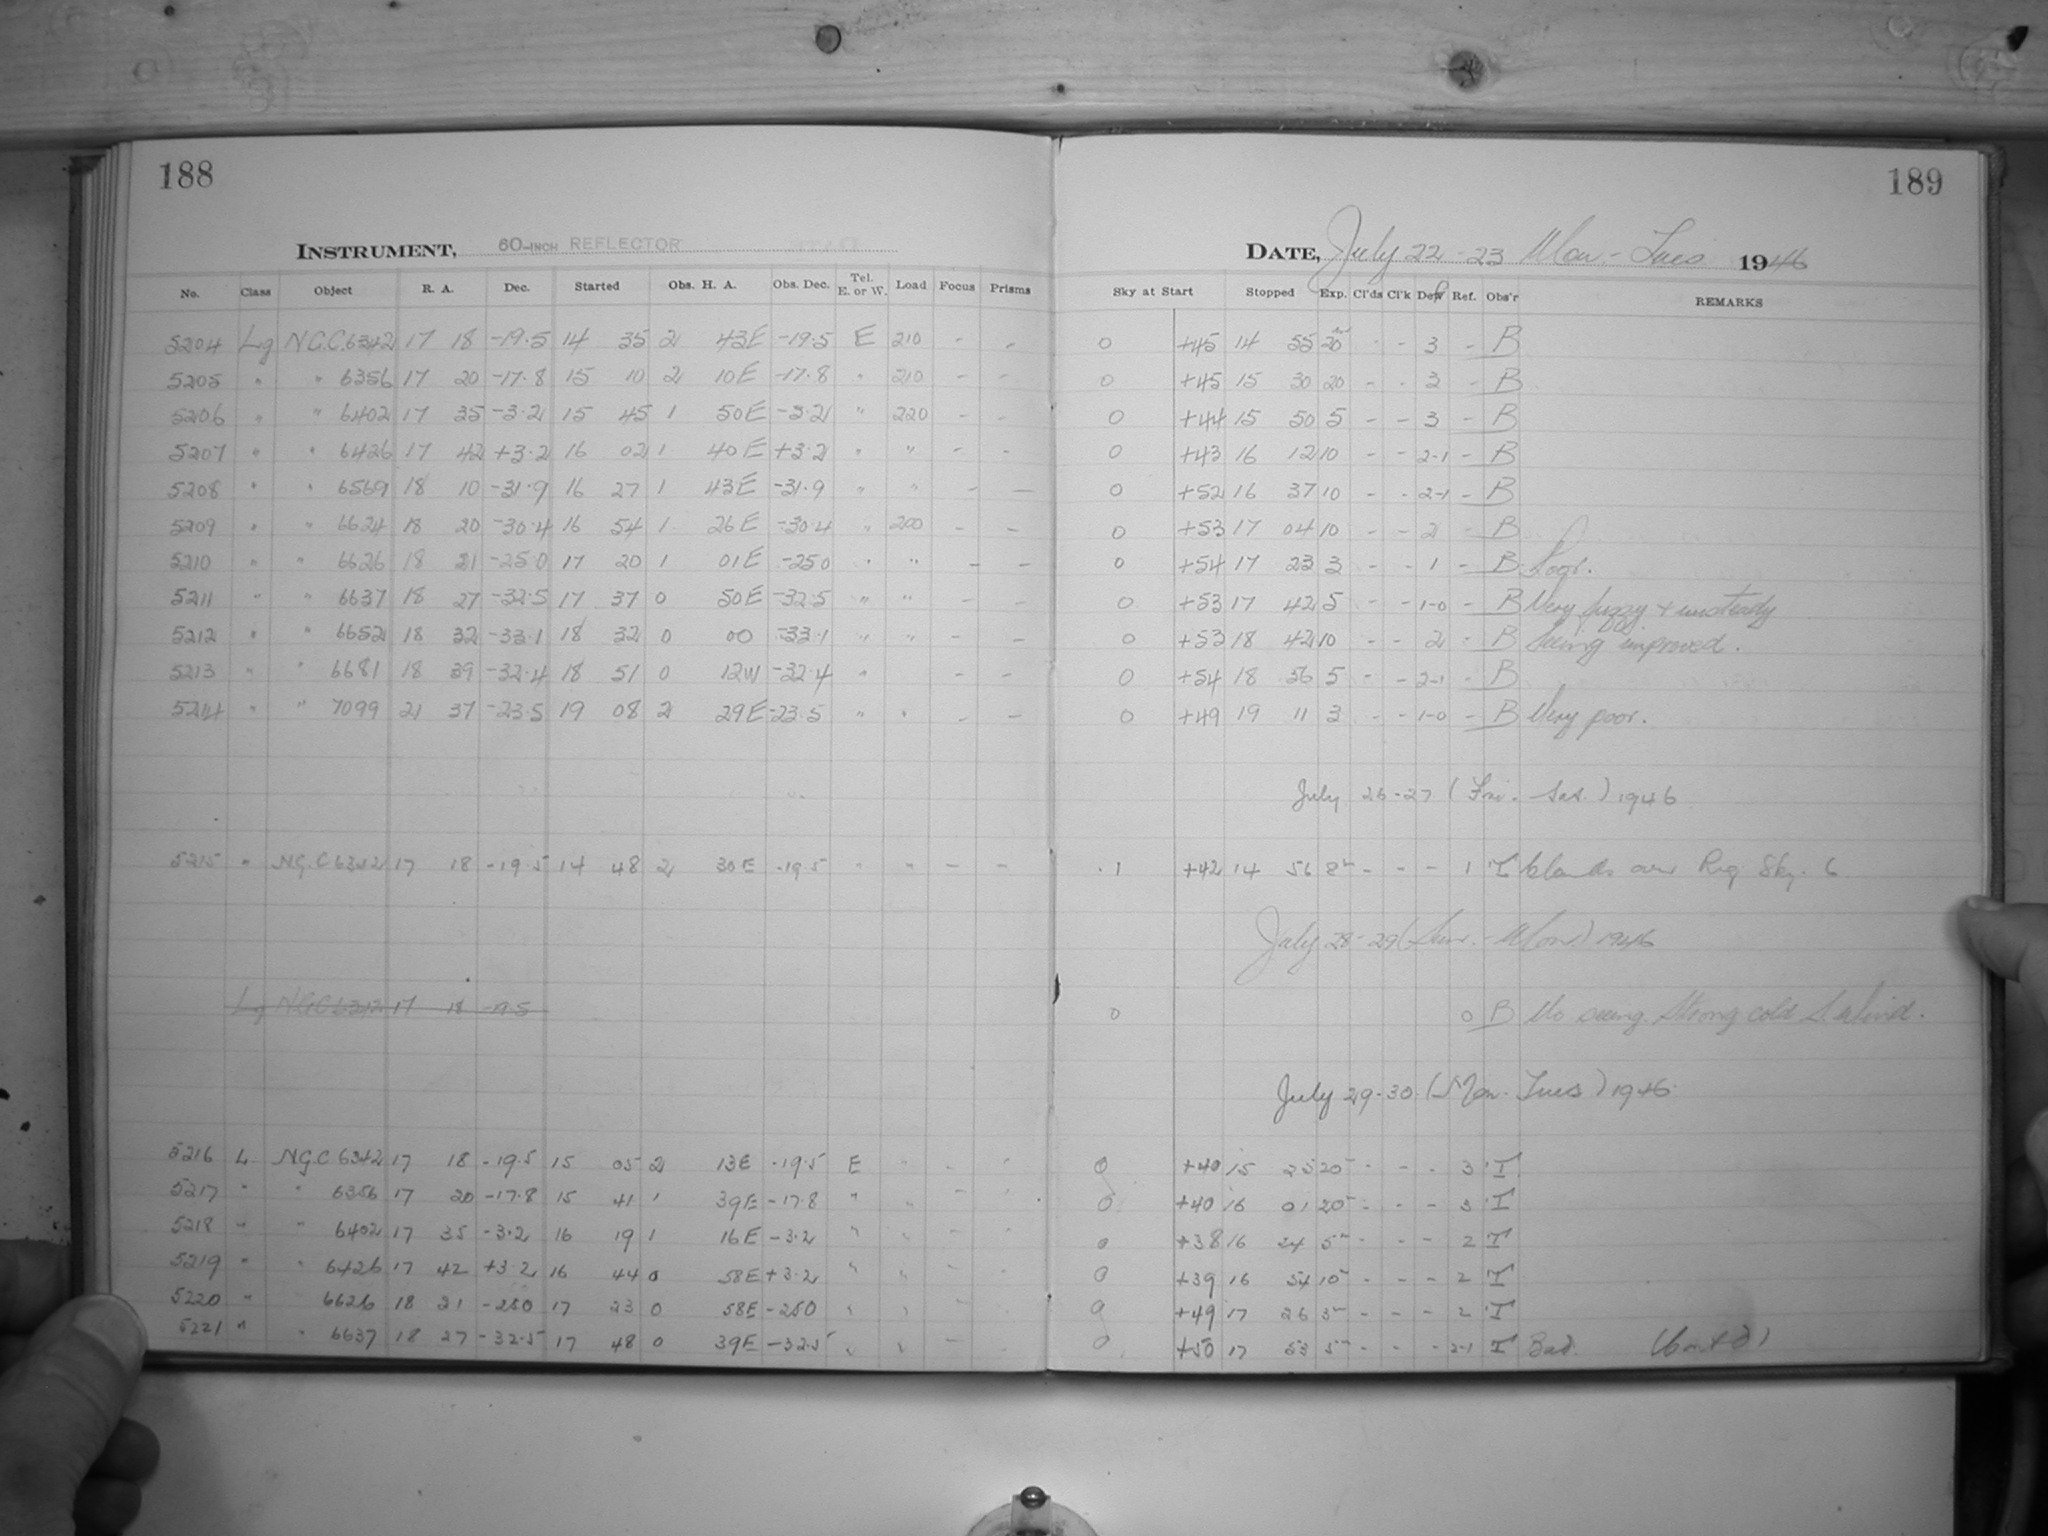 188
189
INSTRUMENT, 60-INCH REFLECTOR
DATE, July 22-23 Mon-Tues 1946
No. Class Object R. A. Dec. Started Obs. H. A. Obs. Dec. Tel. E. or W. Load Focus Prisms Sky at Start Stopped Exp. Cl'ds Cl'k Def Ref. Obs'r REMARKS
5204 Lg N.G.C. 6342 17 18 -19.5 14 35 2 43E -19.5 E 210 - - 0 +45 14 55 20 - - 3 - B
5205 " " 6356 17 20 -17.8 15 10 2 10E -17.8 " 210 - - 0 +45 15 30 20 - - 3 - B
5206 " " 6402 17 35 -3.2 15 45 1 50E -3.2 " 220 - - 0 +44 15 50 5 - - 3 - B
5207 " " 6426 17 42 +3.2 16 02 1 40E +3.2 " " - - 0 +43 16 12 10 - - 2-1 - B
5208 " " 6569 18 10 -31.9 16 27 1 43E -31.9 " " - - 0 +52 16 37 10 - - 2-1 - B
5209 " " 6624 18 20 -30.4 16 54 1 26E -30.4 " 200 - - 0 +53 17 04 10 - - 2 - B
5210 " " 6626 18 21 -25.0 17 20 1 01E -25.0 " " - - 0 +54 17 23 3 - - 1 - B
5211 " " 6637 18 27 -32.5 17 37 0 50E -32.5 " " - - 0 +53 17 42 5 - - 1-0 - B Very fuzzy + unsteady
5212 " " 6652 18 32 -33.1 18 32 0 00 -33.1 " " - - 0 +53 18 42 10 - - 2 - B Seeing improved.
5213 " " 6681 18 39 -32.4 18 51 0 12W -32.4 " - - 0 +54 18 56 5 - - 2-1 - B
5214 " " 7099 21 37 -23.5 19 08 2 29E -23.5 " " - - 0 +49 19 11 3 - - 1-0 - B Very poor.
July 26-27 (Fri. - Sat.) 1946
5215 " N.G.C 6342 17 18 -19.5 14 48 2 30E -19.5 " " - - 1 +42 14 56 8m - - - 1 T Clouds over Sky. 6
July 28-29 (Sun. - Mon.) 1946
Lg N.G.C 6342 17 18 -19.5 0 0 B No seeing. Strong cold S. Wind.
July 29-30 (Mon. Tues) 1946
5216 L N.G.C 6342 17 18 -19.5 15 05 2 13E -19.5 E " - " 0 +40 15 25 20m - - - 3 T
5217 " " 6356 17 20 -17.8 15 41 1 39E -17.8 " " - " 0 +40 16 01 20m - - - 3 T
5218 " " 6402 17 35 -3.2 16 19 1 16E -3.2 " " - " 0 +38 16 24 5m - - - 2 T
5219 " " 6426 17 42 +3.2 16 44 0 58E +3.2 " " - " 0 +39 16 54 10m - - - 2 T
5220 " " 6626 18 21 -250 17 23 0 58E -250 " " - " 0 +49 17 26 3m - - - 2 T
5221 " " 6637 18 27 -32.5 17 48 0 39E -32.5 " " - " 0 +50 17 53 5m - - - 2-1 T Bad. (Cont'd)